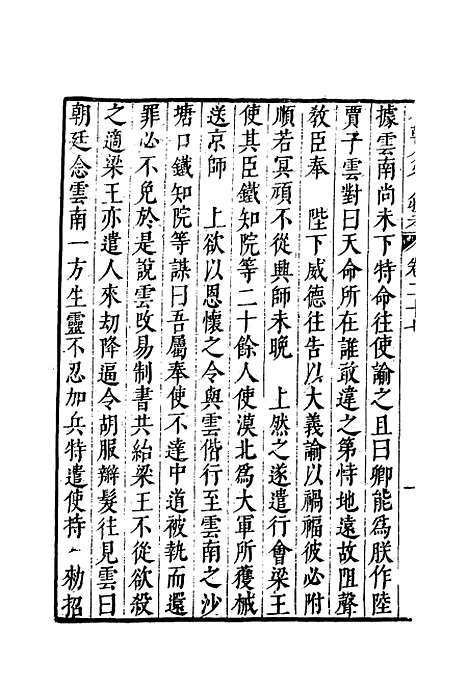 卷二十七
據雲南尚未下特命往使諭之且曰卿能爲朕作陸
賈子雲對曰天命所在誰敢違之第恃地遠故阻聲
教臣奉 陛下威德往告以大義諭以禍福彼必附
順若冥頑不從興師未晚 上然之遂遣行會梁王
使其臣鐵知院等二十餘人使漠北爲大軍所獲械
送京師 上欲以恩懷之令與雲偕行至雲南之沙
塘口鐵知院等謀曰吾屬奉使不達中道被執而還
罪必不免於是說雲改易制書共紿梁王不從欲殺
之適梁王亦遣人來劫降逼令胡服辮髮往見雲曰
朝廷念雲南一方生靈不忍加兵特遣使持 勑招